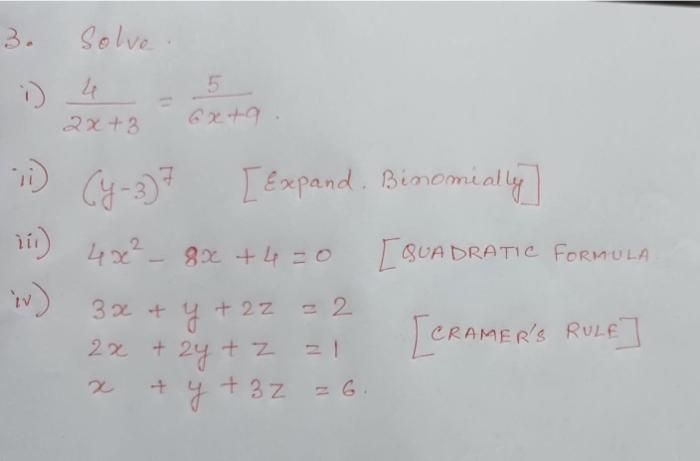 3. Solve.
i) 4/(2x+3) = 5/(6x+9).
ii) (y-3)⁷ [Expand. Binomially]
iii) 4x² - 8x + 4 = 0 [QUADRATIC FORMULA
iv) 3x + y + 2z = 2
2x + 2y + z = 1 [CRAMER'S RULE]
x + y + 3z = 6.